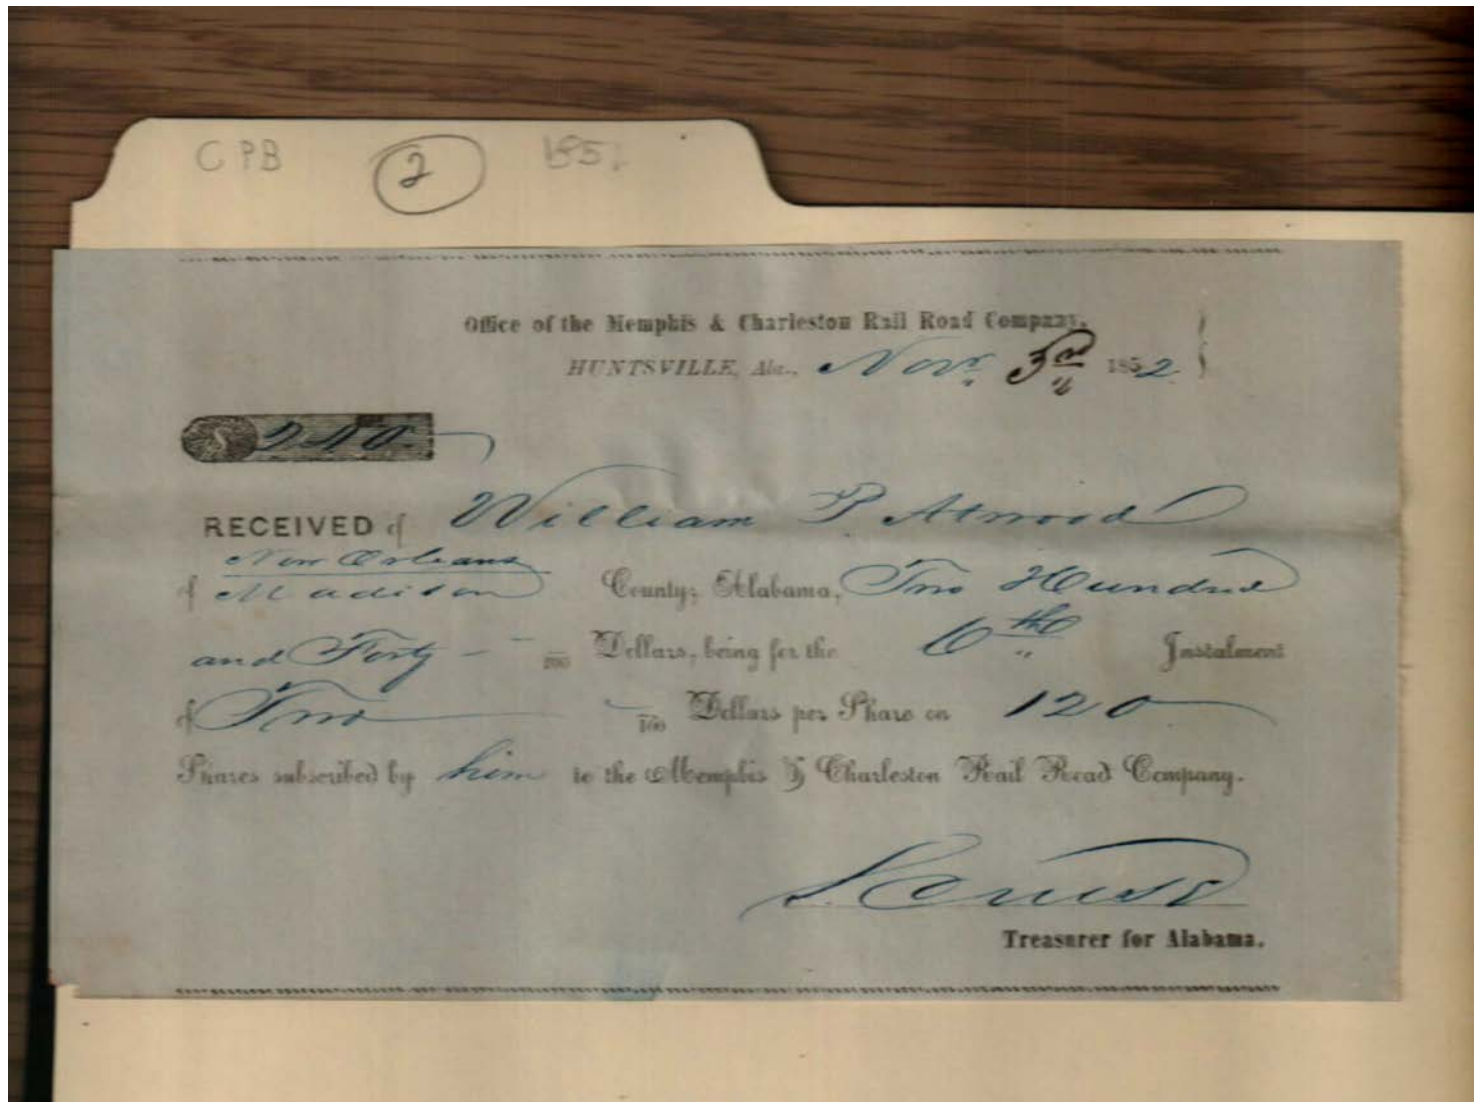 CPB 2 185
Office of the Memphis & Charleston Rail Road Company,
HUNTSVILLE, Ala., Novr. 3rd 1852
$ 240.
RECEIVED of William P. Atwood
New Orleans
of Madison County, Alabama, Two Hundred
and Forty — /100 Dollars, being for the 6th Instalment
of Two — /100 Dollars per Share on 120
Shares subscribed by him to the Memphis & Charleston Rail Road Company.
S. Cruse
Treasurer for Alabama.